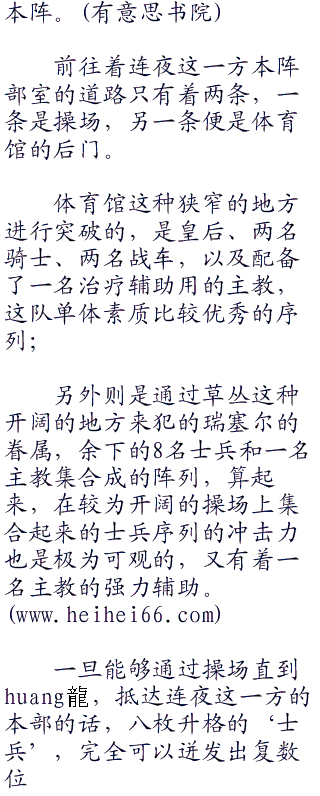 本阵。(有意思书院)
前往着连夜这一方本阵
部室的道路只有着两条，一
条是操场，另一条便是体育
馆的后门。
体育馆这种狭窄的地方
进行突破的，是皇后、两名
骑士、两名战车，以及配备
了一名治疗辅助用的主教，
这队单体素质比较优秀的序
列；
另外则是通过草丛这种
开阔的地方来犯的瑞塞尔的
眷属，余下的8名士兵和一名
主教集合成的阵列，算起
来，在较为开阔的操场上集
合起来的士兵序列的冲击力
也是极为可观的，又有着一
名主教的强力辅助。
(www.heihei66.com)
一旦能够通过操场直到
huang龍，抵达连夜这一方的
本部的话，八枚升格的‘士
兵’，完全可以迸发出复数
位